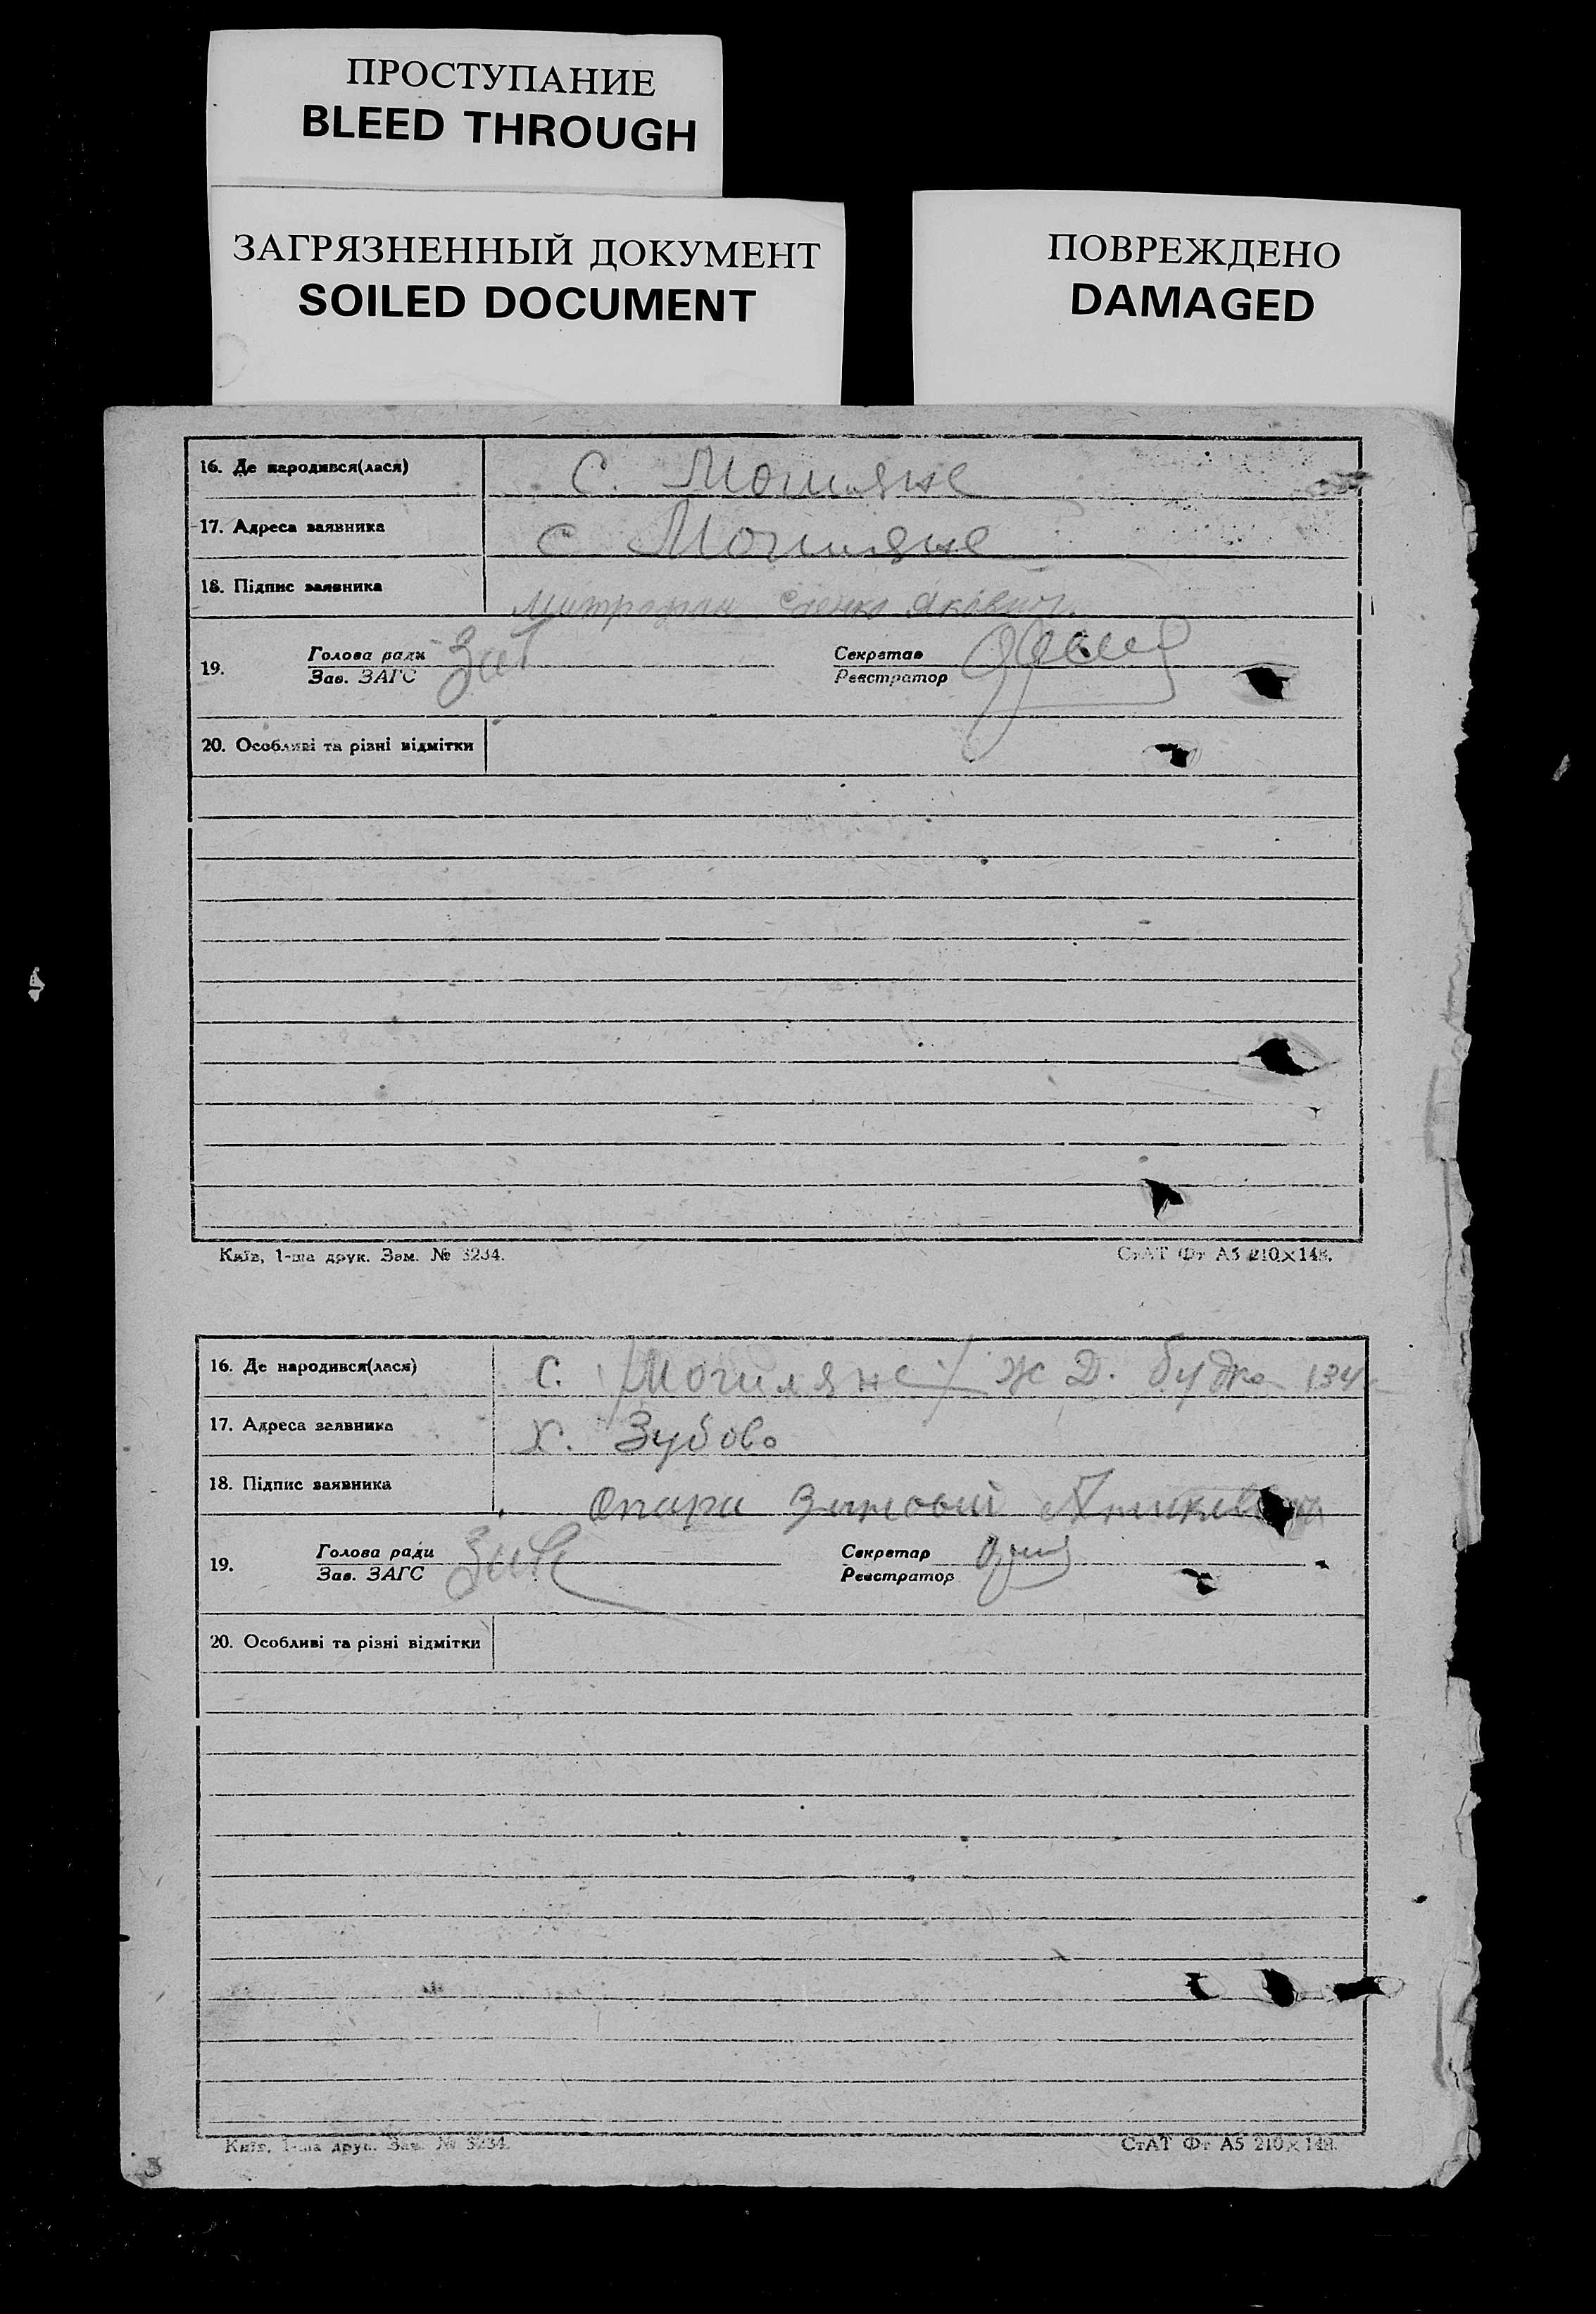 ПРОСТУПАНИЕ
BLEED THROUGH
ЗАГРЯЗНЕННЫЙ ДОКУМЕНТ
SOILED DOCUMENT
ПОВРЕЖДЕНО
DAMAGED
16. Де народився(лася) с. Могиляне
17. Адреса заявника с Могиляне
18. Підпис заявника Митрофан Яківич
19. Голова ради Секретар
Зав. ЗАГС Реєстратор
20. Особливі та різні відмітки
Київ, 1-ша друк. Зам. № 3234. СтАТ Фт А5 210×148.
16. Де народився(лася) С. /Могиляне/ Ж Д. будка 134
17. Адреса заявника Х. Зубово
18. Підпис заявника Опара
19. Голова ради Секретар
Зав. ЗАГС Реєстратор
20. Особливі та різні відмітки
Київ, 1-ша друк. Зам. № 3234. СтАТ Фт А5 210×148.
3